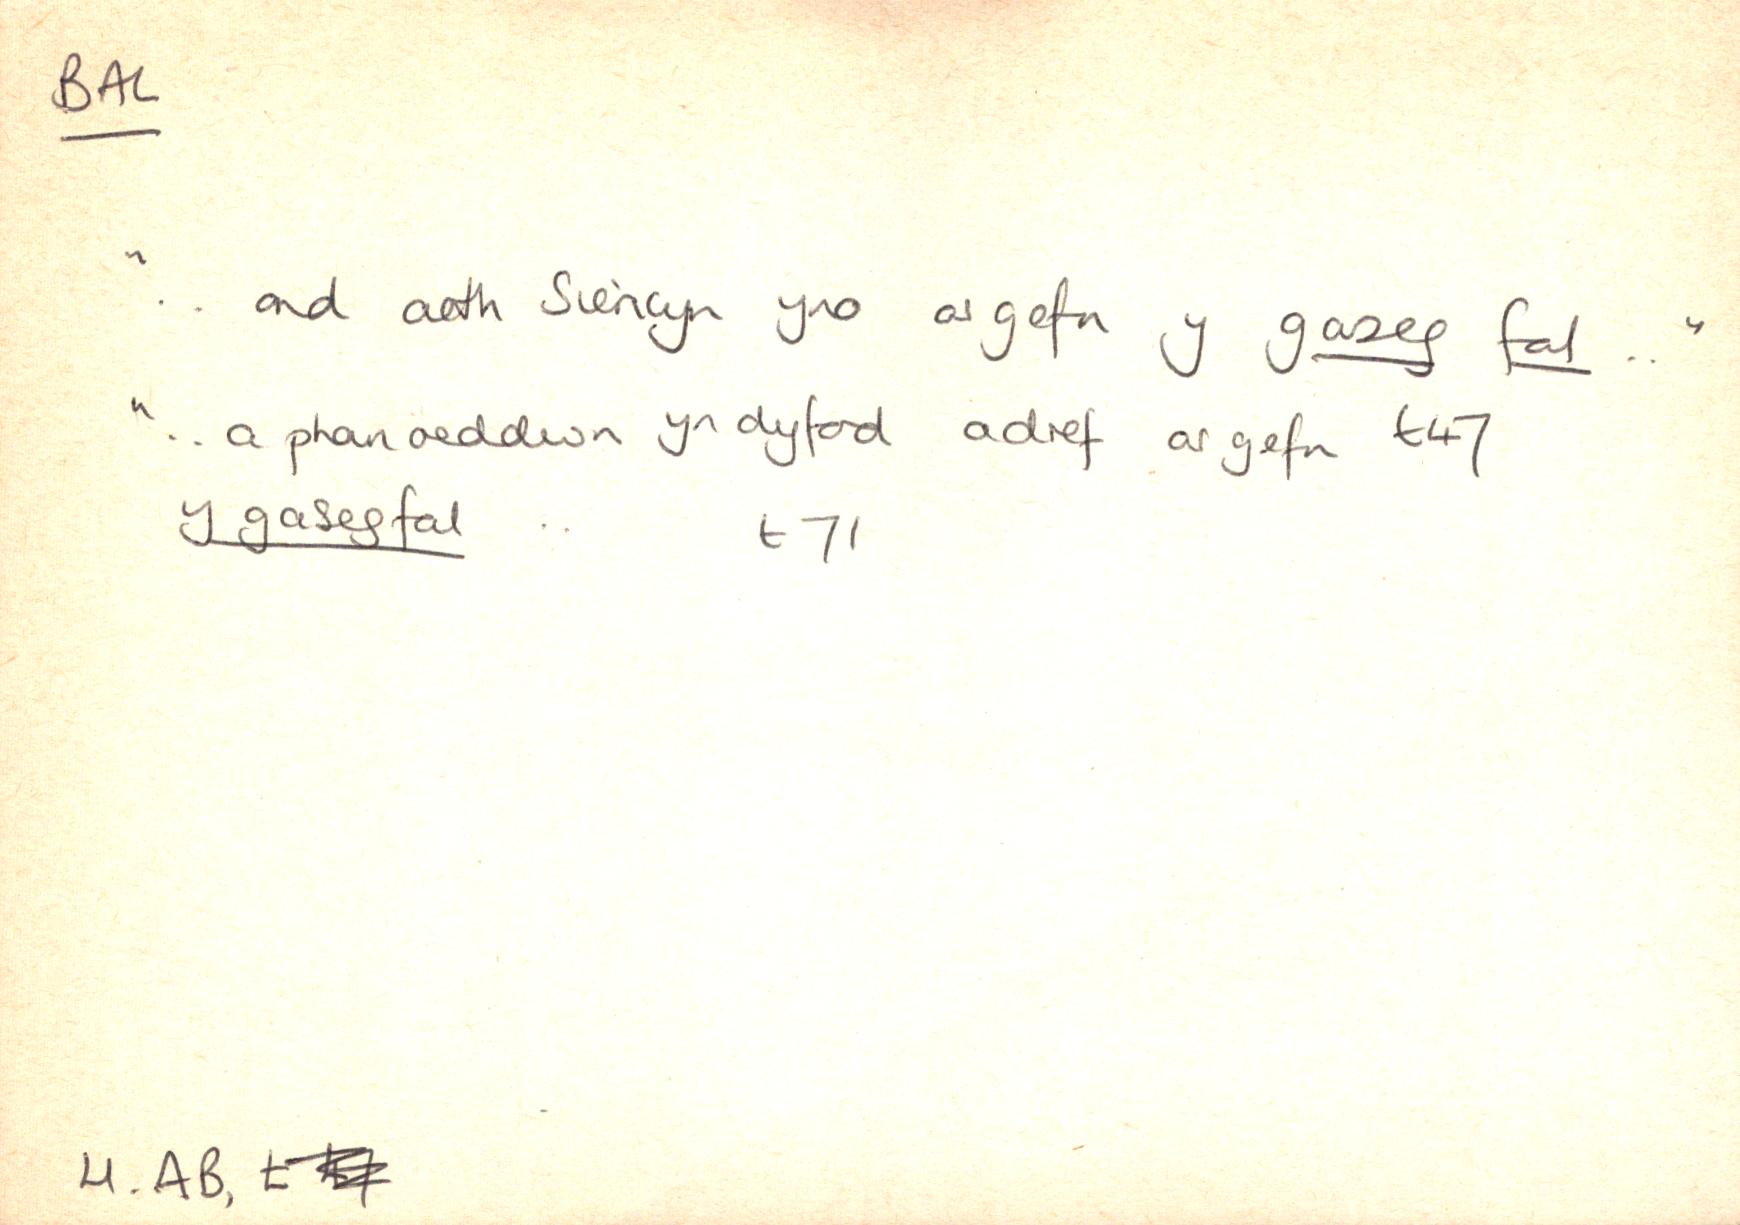 BAL
".. ond aeth Siencyn yno ar gefn y gaseg fal .."
".. a phan oeddwn yn dyfod adref ar gefn t47
y gaseg fal .. t 71
Ll. AB, t